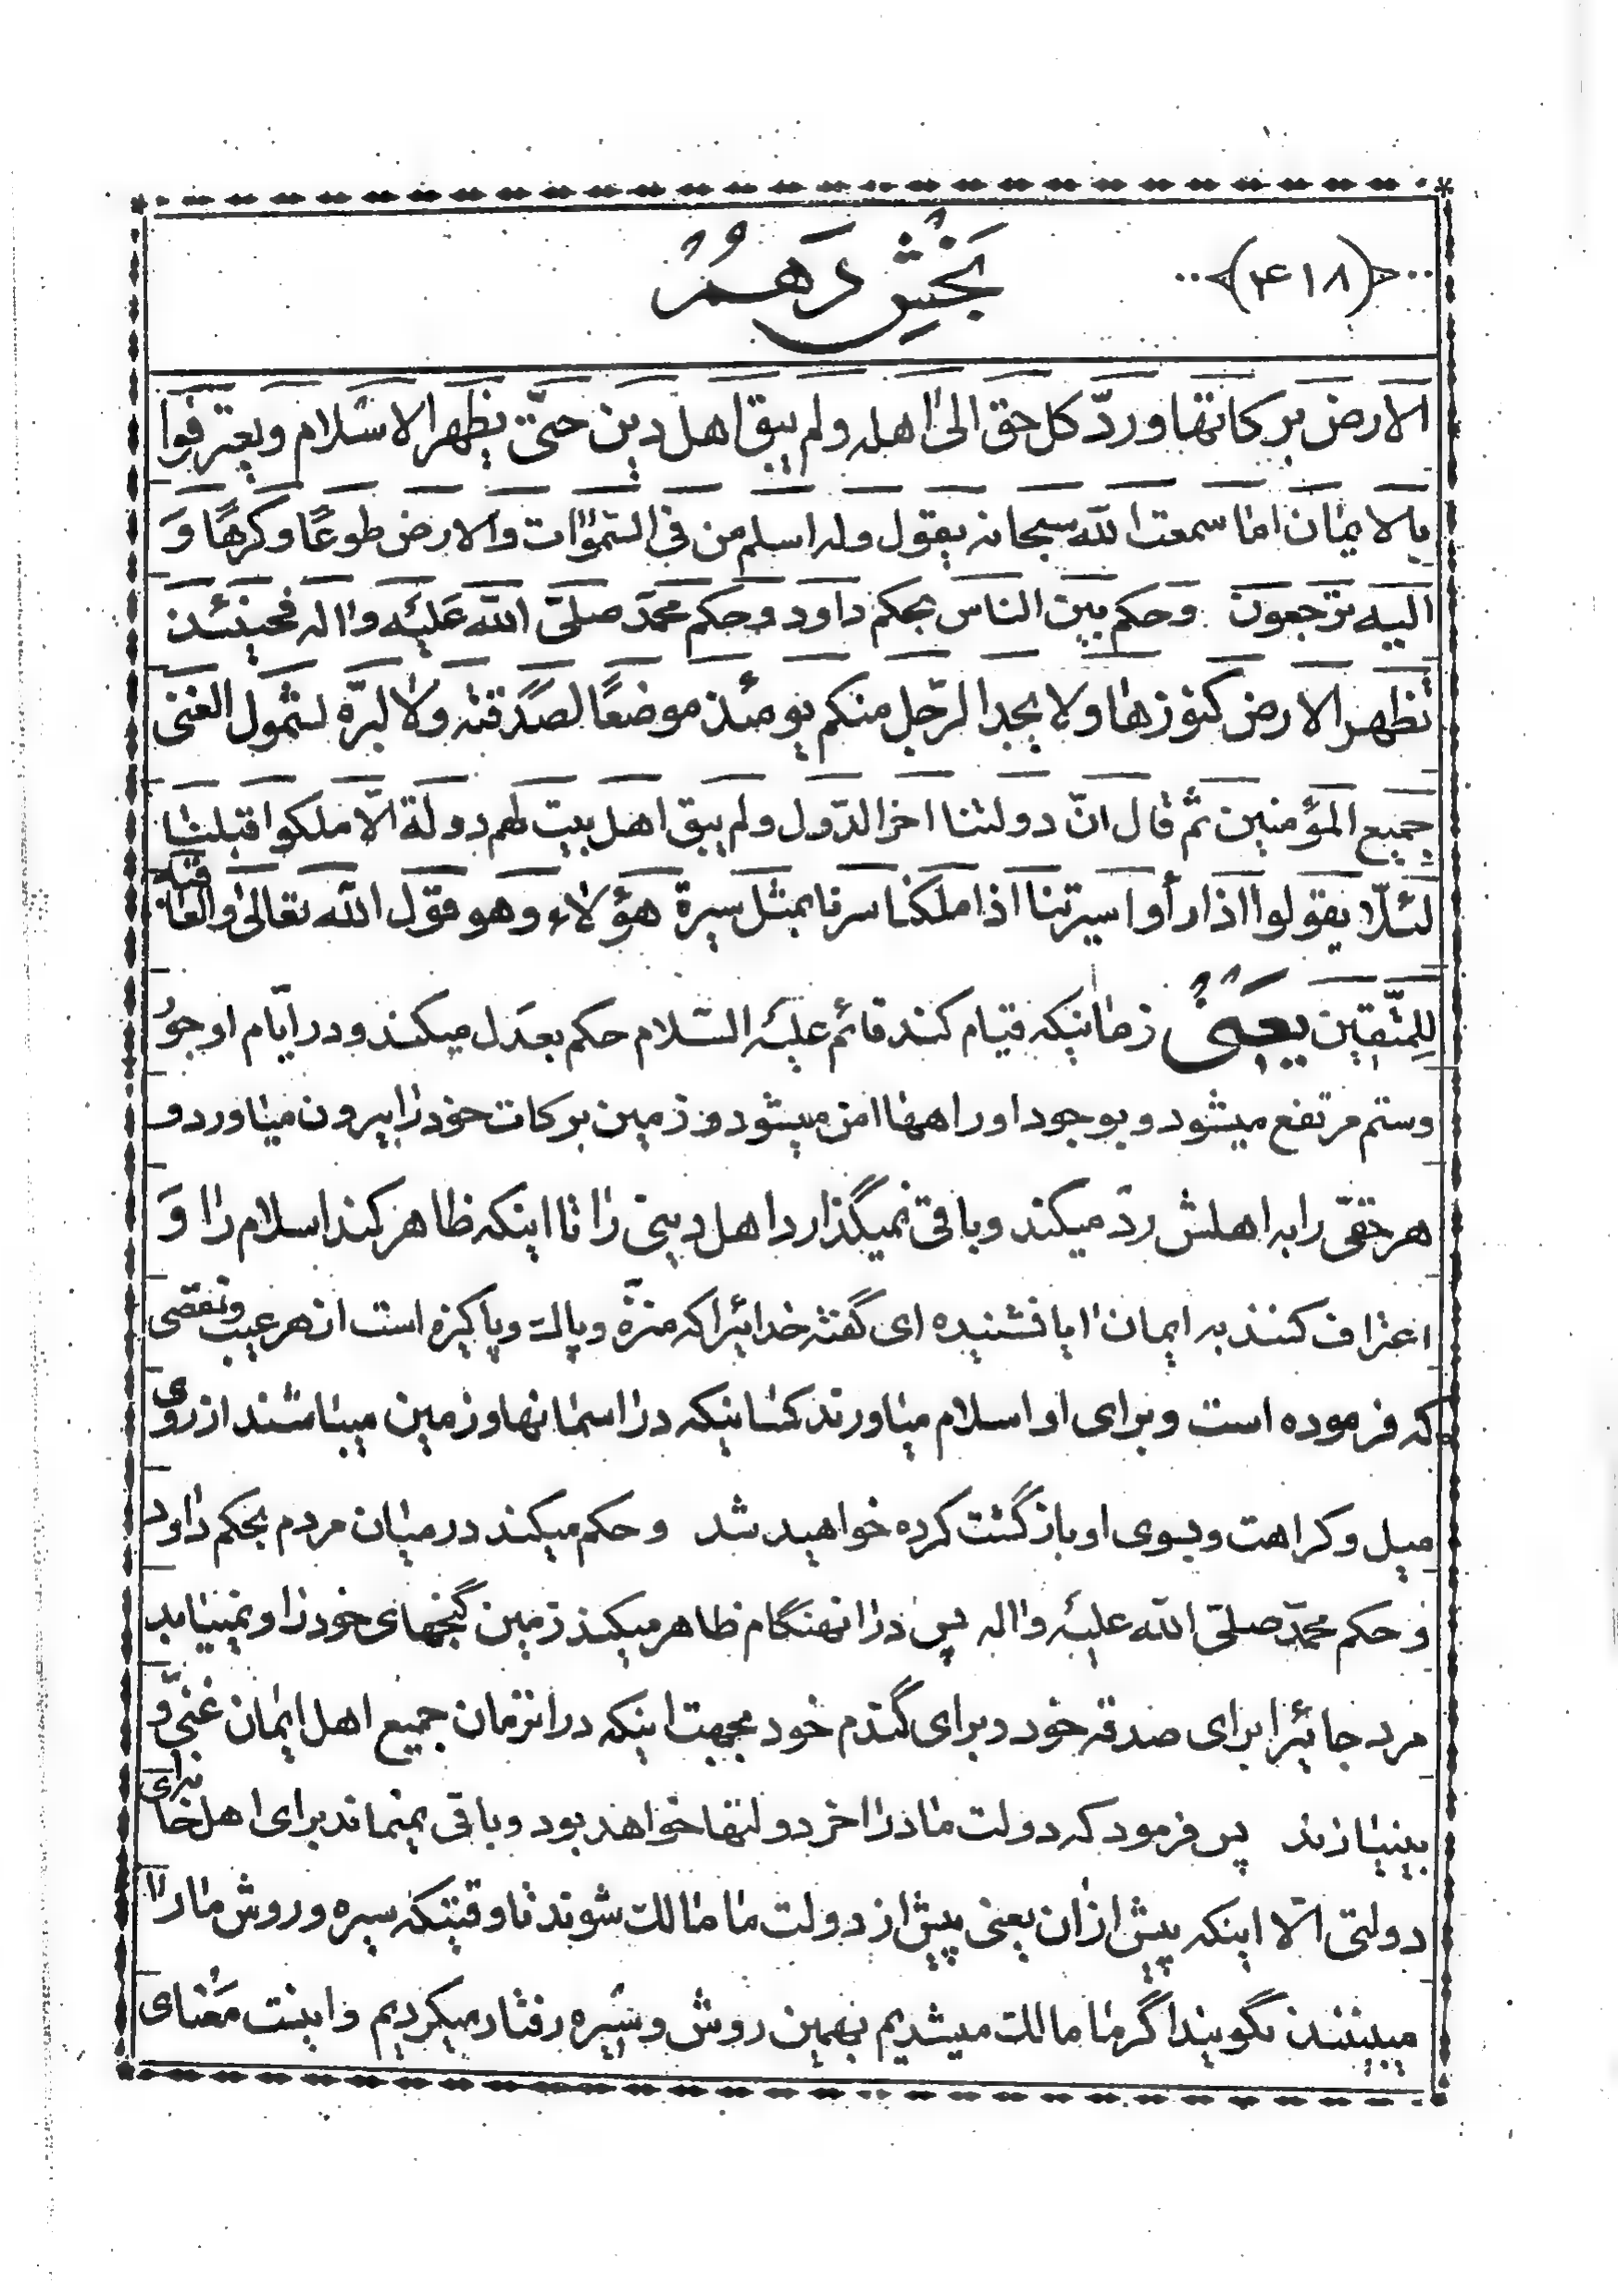 (۴۱۸)
بَخشِ دَهُم
الارض بركاتها وردّ كل حق الىٰ اهله ولم يبق اهل دين حتّى يظهر الاسلام ويعترفوا
بالايمان اما سمعت الله سبحانه يقول وله اسلم من في السّمٰوات والارض طوعًا وكرهًا وَ
اليه ترجعون وحكم بين الناس بحكم داود وحكم محمّد صلّى الله عَليْه واٰله فحينئذ
تظهر الارض كنوزها ولا يجد الرّجل منكم يومئذ موضعًا لصَدَقته ولا لبرّه لشمول الغنى
جميع المؤمنين ثمّ قال انّ دولتنا اخر الدّول ولم يبق اهل بيت لهم دولة الّا ملكوا قبلنا
لئلّا يقولوا اذا رأوا سيرتنا اذا ملكنا سرنا بمثل سيرة هؤلاء وهو قول الله تعالىٰ والعاقبة
لِلمتّقين يَعنى زمانيكه قيام كند قائم عليْه السّلام حكم بعدَل ميكند و در ايّام او جوُ
وستم مرتفع ميشود و بوجود او راهها امن ميشود و زمين بركات خود را بيرون مياورد و
هر حقّى را به اهلش ردّ ميكند و باقى نميگذارد اهل دينى را تا اينكه ظاهر كند اسلام را وَ
اعتراف كنند به ايمان ايا نشنيده اى گفته خدائيرا كه منزّه و پاك و پاكيزه است از هر عيب ونقصى
كه فرموده است و براى او اسلام مياورند كسانيكه در اسمانها و زمين ميباشند از روى
ميل و كراهت و بسوى او بازگشت كرده خواهيد شد و حكم ميكند در ميان مردم بحكم داود
و حكم محمّد صلّى الله عليْه واٰله پس در انهنگام ظاهر ميكند زمين گنجهاى خود را و نمييابد
مرد جائيرا براى صدقه خود و براى گندم خود بجهت اينكه در انزمان جميع اهل ايمان غنىّ و
بينيازند پس فرمود كه دولت ما در اخر دولتها خواهد بود و باقى نميماند براى اهل خا براى
دولتى الّا اينكه پيش از ان يعنى پيش از دولت ما مالك شوند تا وقتيكه سيره و روش ما را
ميبينند نگويند اگر ما مالك ميشديم بهمين روش و سيره رفتار ميكرديم و اينست مَعناى